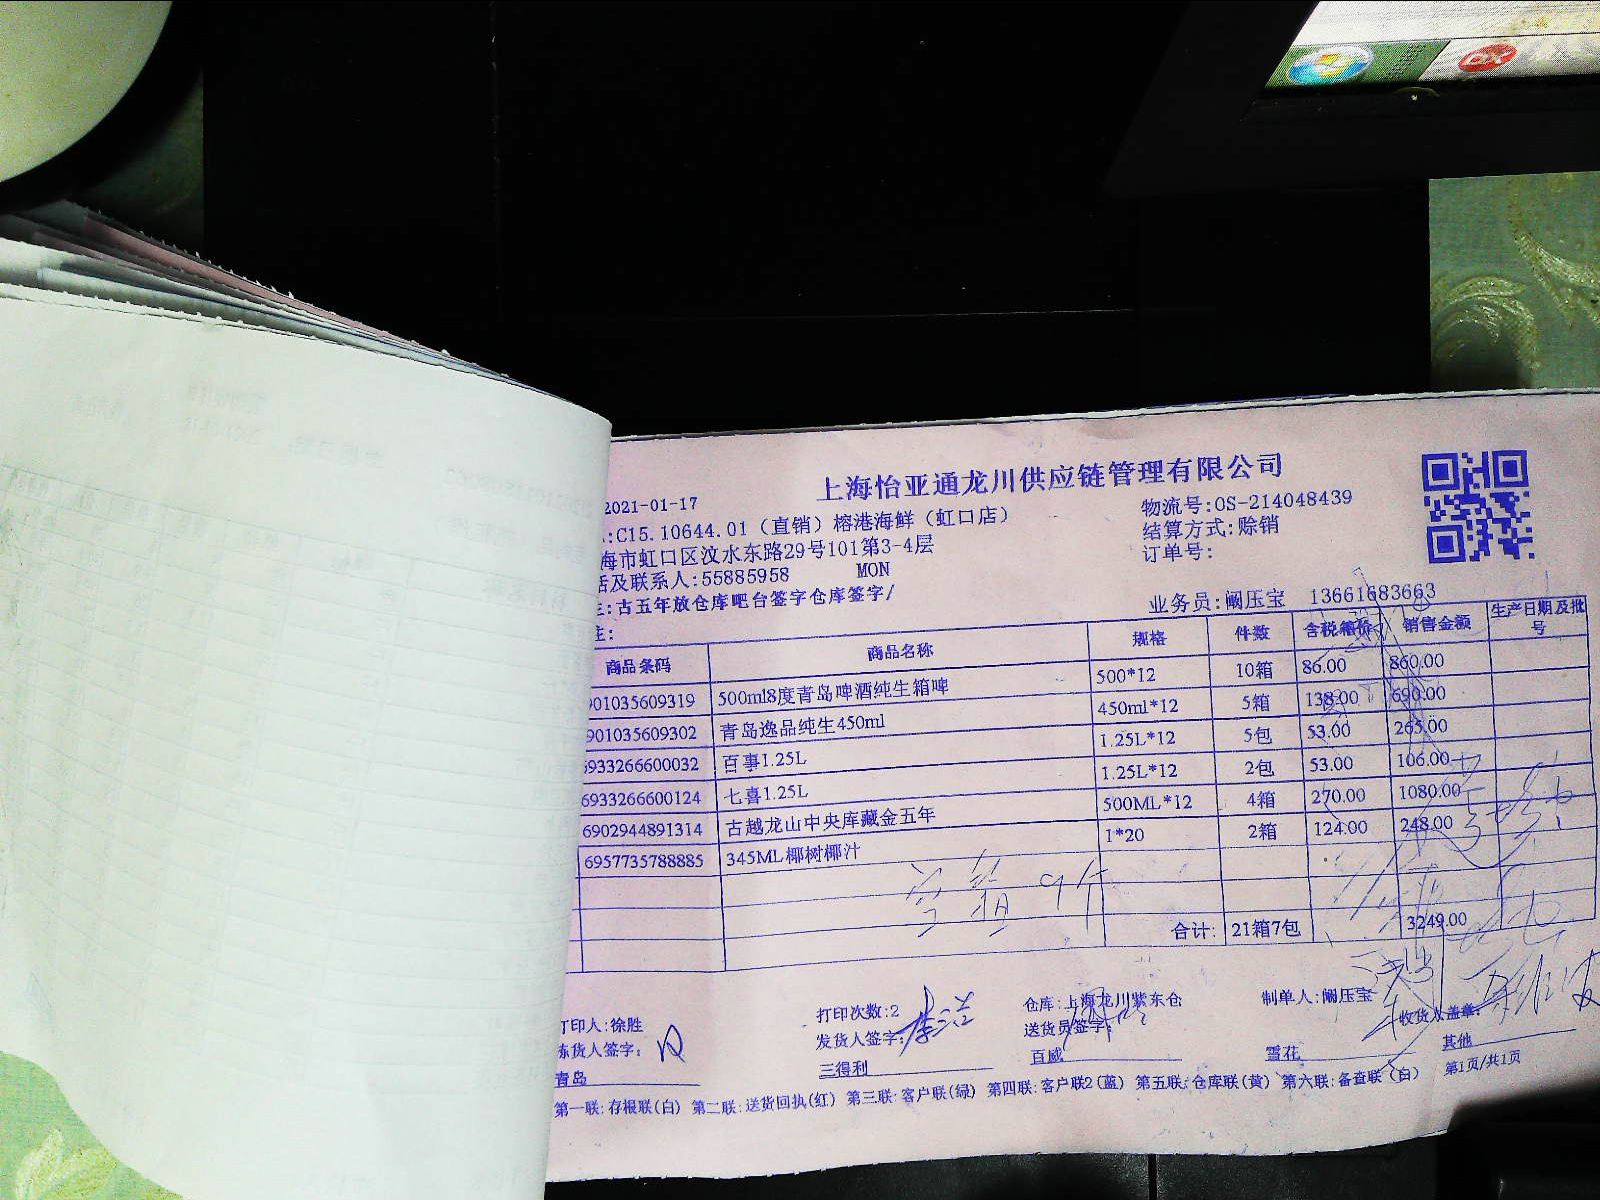 上海怡亚通龙川供应链管理有限公司
2021-01-17
物流号:OS-214048439
:C15.10644.01（直销）榕港海鲜（虹口店）
结算方式:赊销
海市虹口区汶水东路29号101第3-4层
订单号:
话及联系人:55885958 MON
注:古五年放仓库吧台签字仓库签字/
业务员:阚压宝 13661683663
注:
商品条码 商品名称 规格 件数 含税箱价 销售金额 生产日期及批号
901035609319 500ml8度青岛啤酒纯生箱啤 500*12 10箱 86.00 860.00
901035609302 青岛逸品纯生450ml 450ml*12 5箱 138.00 690.00
6933266600032 百事1.25L 1.25L*12 5包 53.00 265.00
6933266600124 七喜1.25L 1.25L*12 2包 53.00 106.00
6902944891314 古越龙山中央库藏金五年 500ML*12 4箱 270.00 1080.00
6957735788885 345ML椰树椰汁 1*20 2箱 124.00 248.00
合计: 21箱7包 3249.00
打印人:徐胜 打印次数:2 仓库:上海龙川紫东仓 制单人:阚压宝
拣货人签字: 发货人签字: 送货员签字: 收货人盖章:
青岛 三得利 百威 雪花 其他
第一联:存根联(白) 第二联:送货回执(红) 第三联:客户联(绿) 第四联:客户联2(蓝) 第五联:仓库联(黄) 第六联:备查联(白) 第1页/共1页